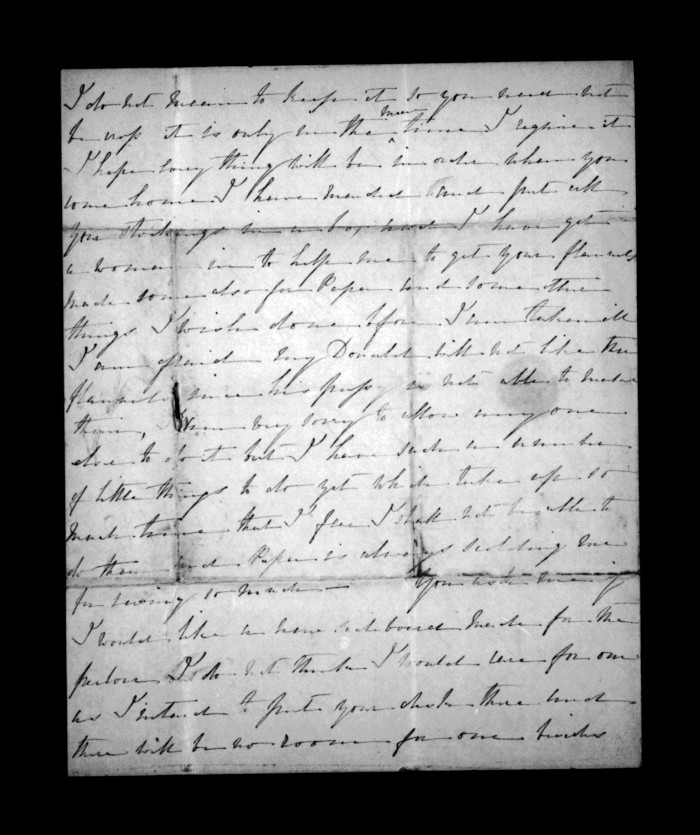 I do not mean to keep it so you need not
be cross it is only in the mean time I require it
I hope every thing will be in order when you
come home I have mended and put all
your stockings in a box and I have got
a woman in to help me to get your flannels
made some also for Papa and some other
things I wish done before I am taken ill
I am afraid my Donald will not like the
flannels since his pussy is not able to make
them, I am very sorry to allow any one
else to do it but I have such a number
of little things to do yet which take up so
much time that I fear I shall not be able to
do them and Papa is always scolding me
for sewing so much — You ask me if
I would like a new sideboard made for the
parlour I do not think I would care for one
as I intend to put your desk there and
there will be no room for one besides